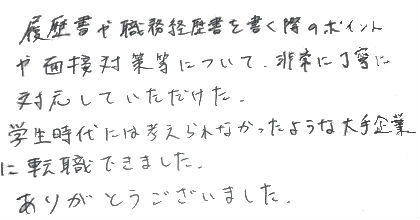 履歴書や職務経歴書を書く際のポイント
や面接対策等について、非常に丁寧に
対応していただけた。
学生時代には考えられなかったような大手企業
に転職できました。
ありがとうございました。